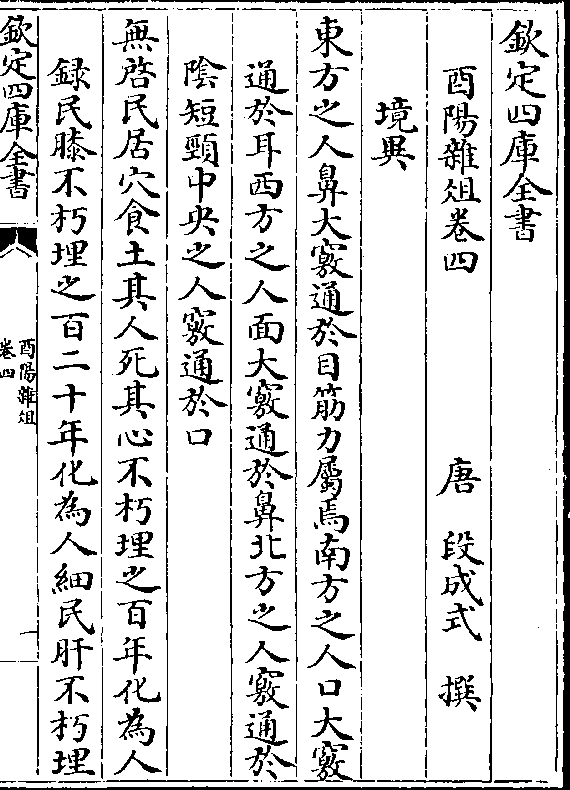 欽定四庫全書
酉陽雜俎卷四
唐　段成式　撰
境異
東方之人鼻大竅通於目筋力屬焉南方之人口大竅
通於耳西方之人面大竅通於鼻北方之人竅通於
陰短頸中央之人竅通於口
無啓民居穴食土其人死其心不朽埋之百年化為人
録民膝不朽埋之百二十年化為人細民肝不朽埋
欽定四庫全書
酉陽雜俎
卷四
一